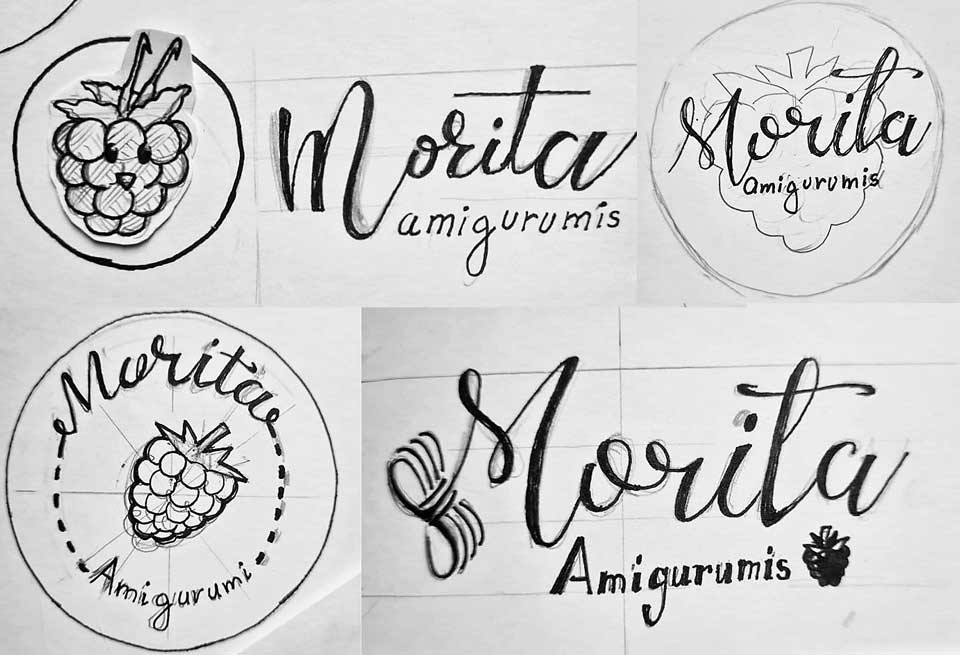 Morita
amigurumis
Morita
amigurumis
Morita
Amigurumi
Morita
Amigurumis